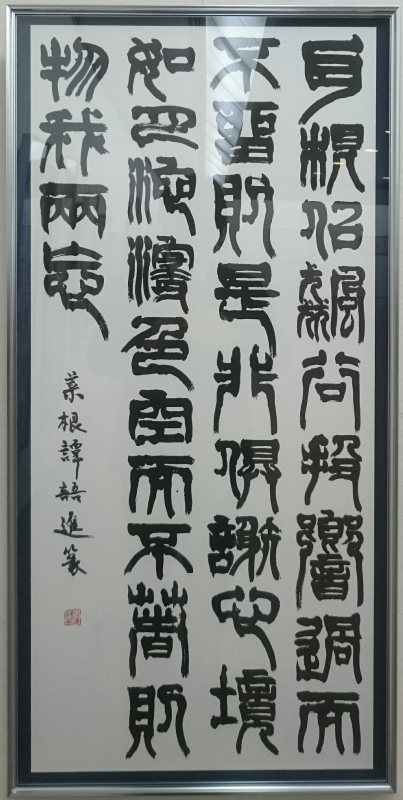 耳根似飆谷投響過而
不留則是非俱謝心境
如月池浸色空而不著則
物我兩忘
菜根譚語進篆